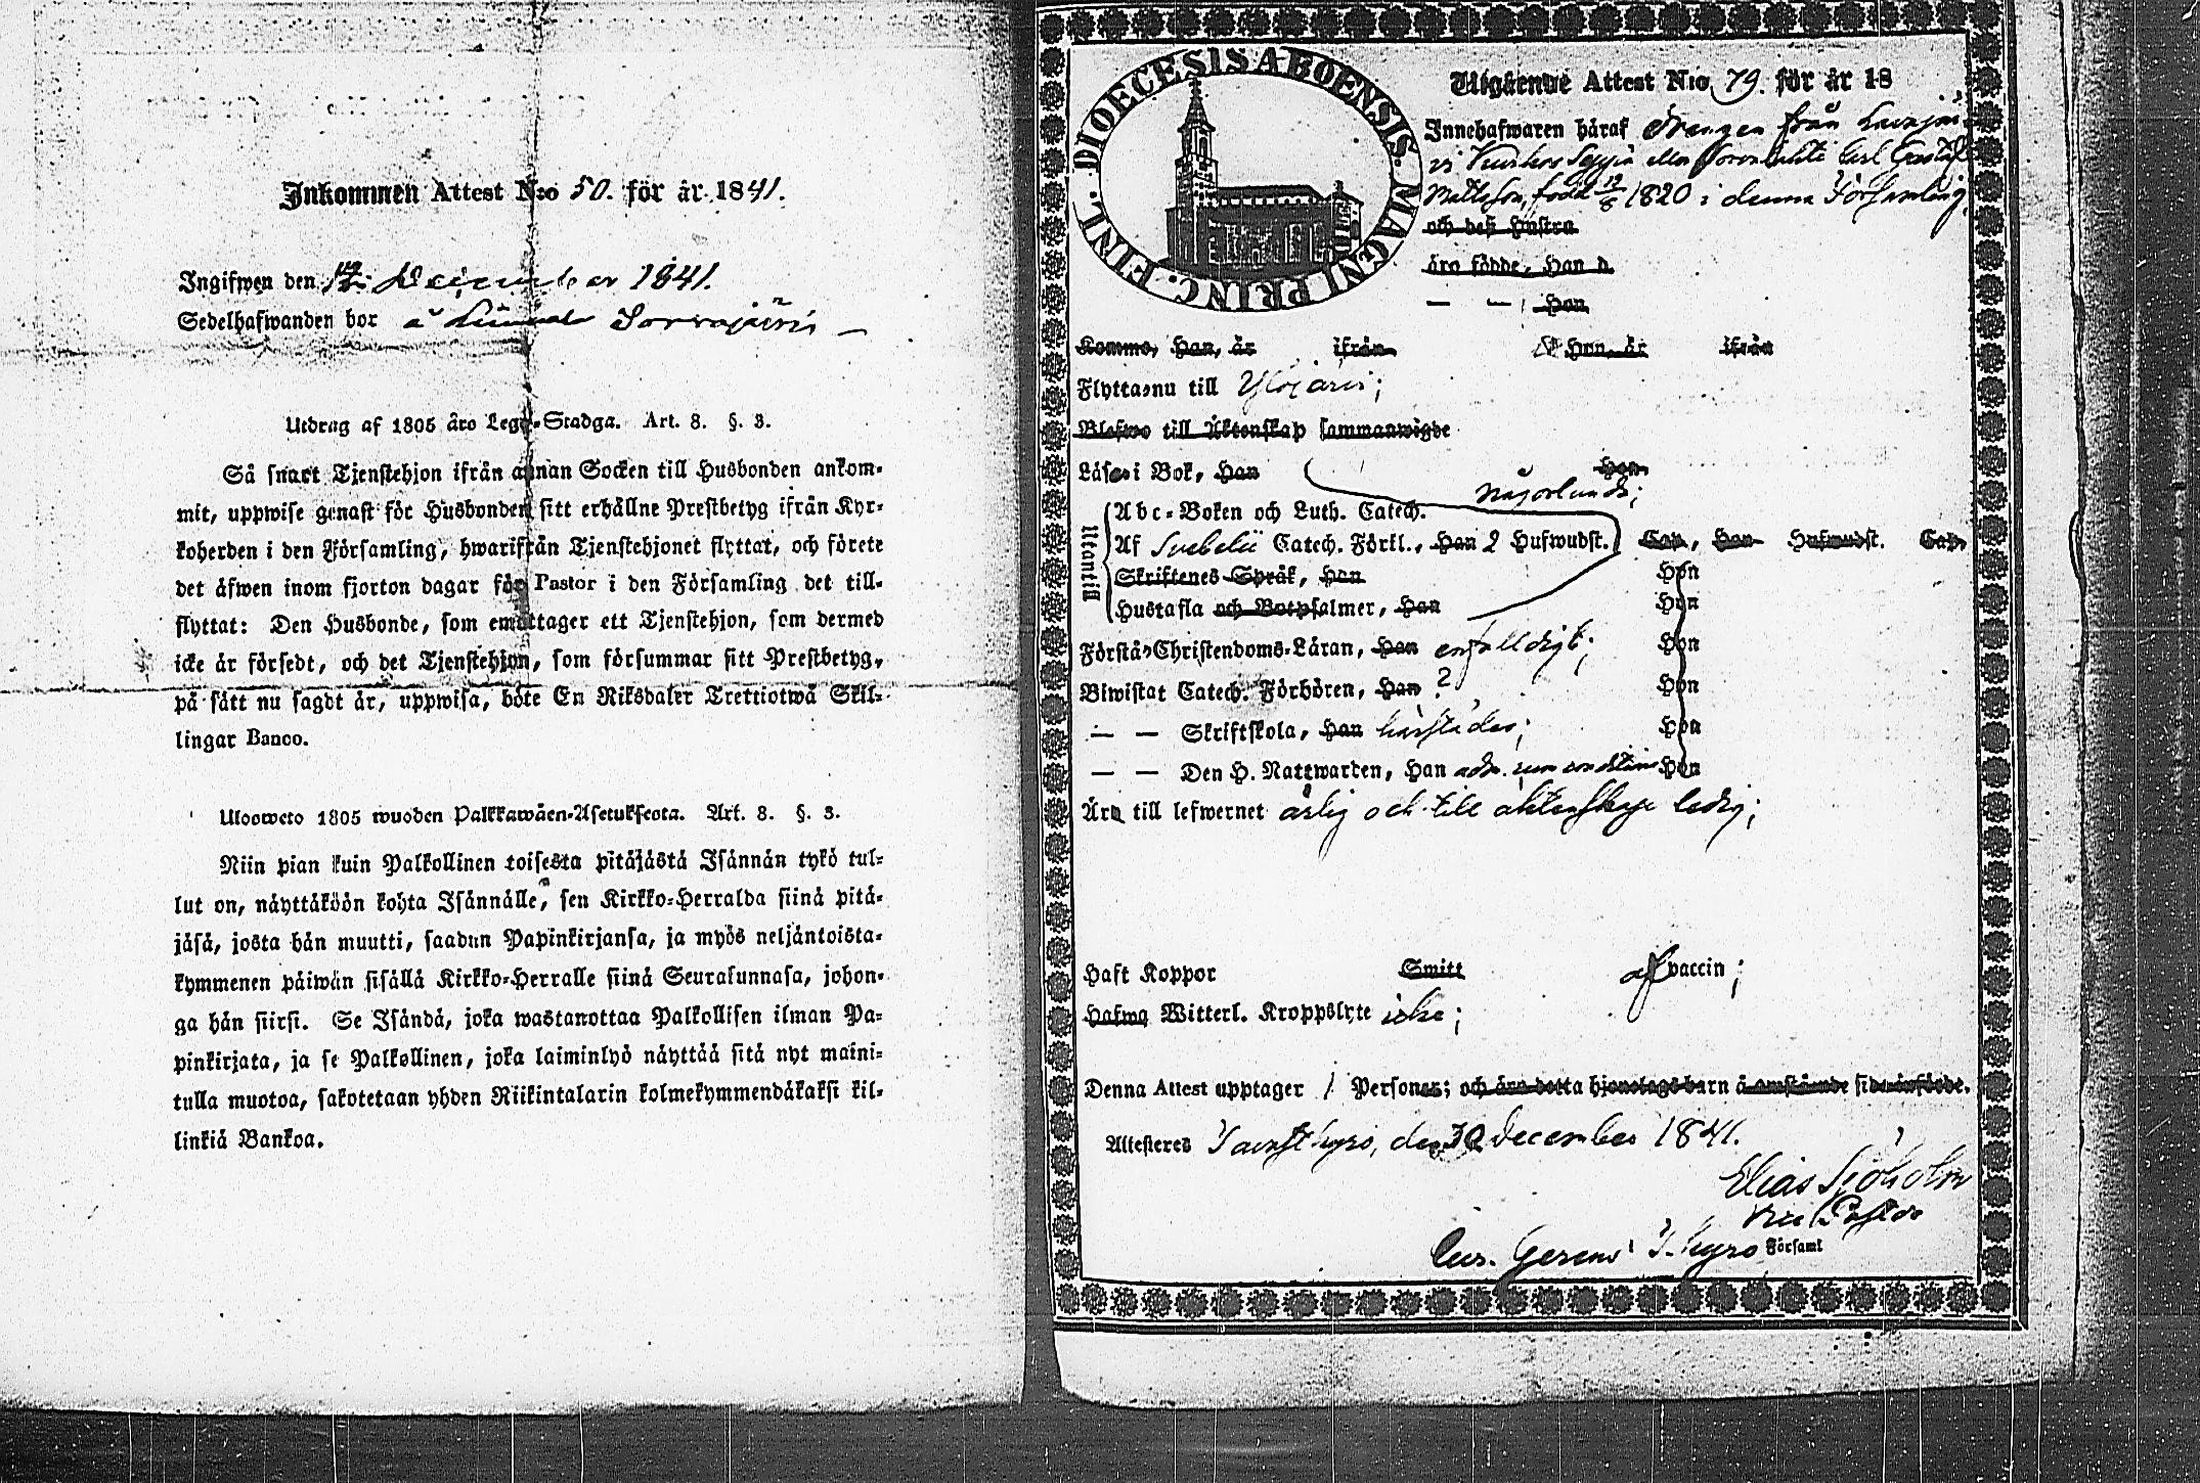 Inkommen Attest N:o 50. för år 1841.
Ingifwen den December 1841.
Sedelhafwanden bor å
Utdrag af 1805 års Lego-Stadga. Art. 8. §. 3.
Så snart Tjenstehjon ifrån annan Socken till Husbonden ankom-
mit, uppwise genast för Husbonden sitt erhållne Prestbetyg ifrån Kyr-
koherden i den Församling, hwarifrån Tjenstehjonet flyttat, och förete
det äfwen inom fjorton dagar för Pastor i den Församling det till-
flyttat: Den Husbonde, som emottager ett Tjenstehjon, som dermed
icke är försedt, och det Tjenstehjon, som försummar sitt Prestbetyg,
på sätt nu sagdt är, uppwisa, böte En Riksdaler Trettiotwå Skil-
lingar Banco.
Ulosweto 1805 wuoden Palkkawäen-Asetuksesta. Art. 8. §. 3.
Niin pian kuin Palkollinen toisesta pitäjästä Isännän tykö tul-
lut on, näyttäköön kohta Isännälle, sen Kirkko-Herralda siinä pitä-
jäsä, josta hän muutti, saadun Papinkirjansa, ja myös neljäntoista-
kymmenen päiwän sisällä Kirkko-Herralle siinä Seurakunnasa, johon-
ga hän siirsi. Se Isändä, joka wastanottaa Palkollisen ilman Pa-
pinkirjata, ja se Palkollinen, joka laiminlyö näyttää sitä nyt maini-
tulla muotoa, sakotetaan yhden Riikintalarin kolmekymmendäkaksi kil-
linkiä Bankoa.
DIOECESIS ABOENSIS. MAGNI PRINC. FINL.
Utgående Attest N:o 79. för år 18
Innehafwaren häraf Drengen från
eller Carl Gustaf
Mattsson, född 19/8 1820 i denna Församling,
och deß Hustru
äro födde, Han d.
— — Hon
Komne, Han, år ifrån Hon, år ifrån
Flyttar nu till Ylöjärvi;
Blefwo till Äktenskap sammanwigde
Läser i Bok, Han Hon
någorlunda;
Utantill
Abc-Boken och Luth. Catech.
Af Svebelii Catech. Förkl., Han 2 Hufwudst. Cap., Hon Hufwudst. Cap.
Skriftenes Språk, Han Hon
Hustafla och Botpsalmer, Han Hon
Förstå Christendoms-Läran, Han enfalldigt; Hon
Biwistat Catech. Förhören, Han ? Hon
— — Skriftskola, Han härstädes; Hon
— — Den H. Nattwarden, Han adm. cum Hon
Äro till lefwernet ärlig och till äktenskap ledig;
Haft Koppor Smitt af vaccin;
Hafwa Witterl. Kroppslyte icke;
Denna Attest upptager 1 Personer; och äro detta hjonelags barn å omstående sida införde.
Attesteres Tavastkyro, den 30 December 1841.
Elias Sjöholm
Vice Pastor
Cur. Gerens i T. kyro Församl